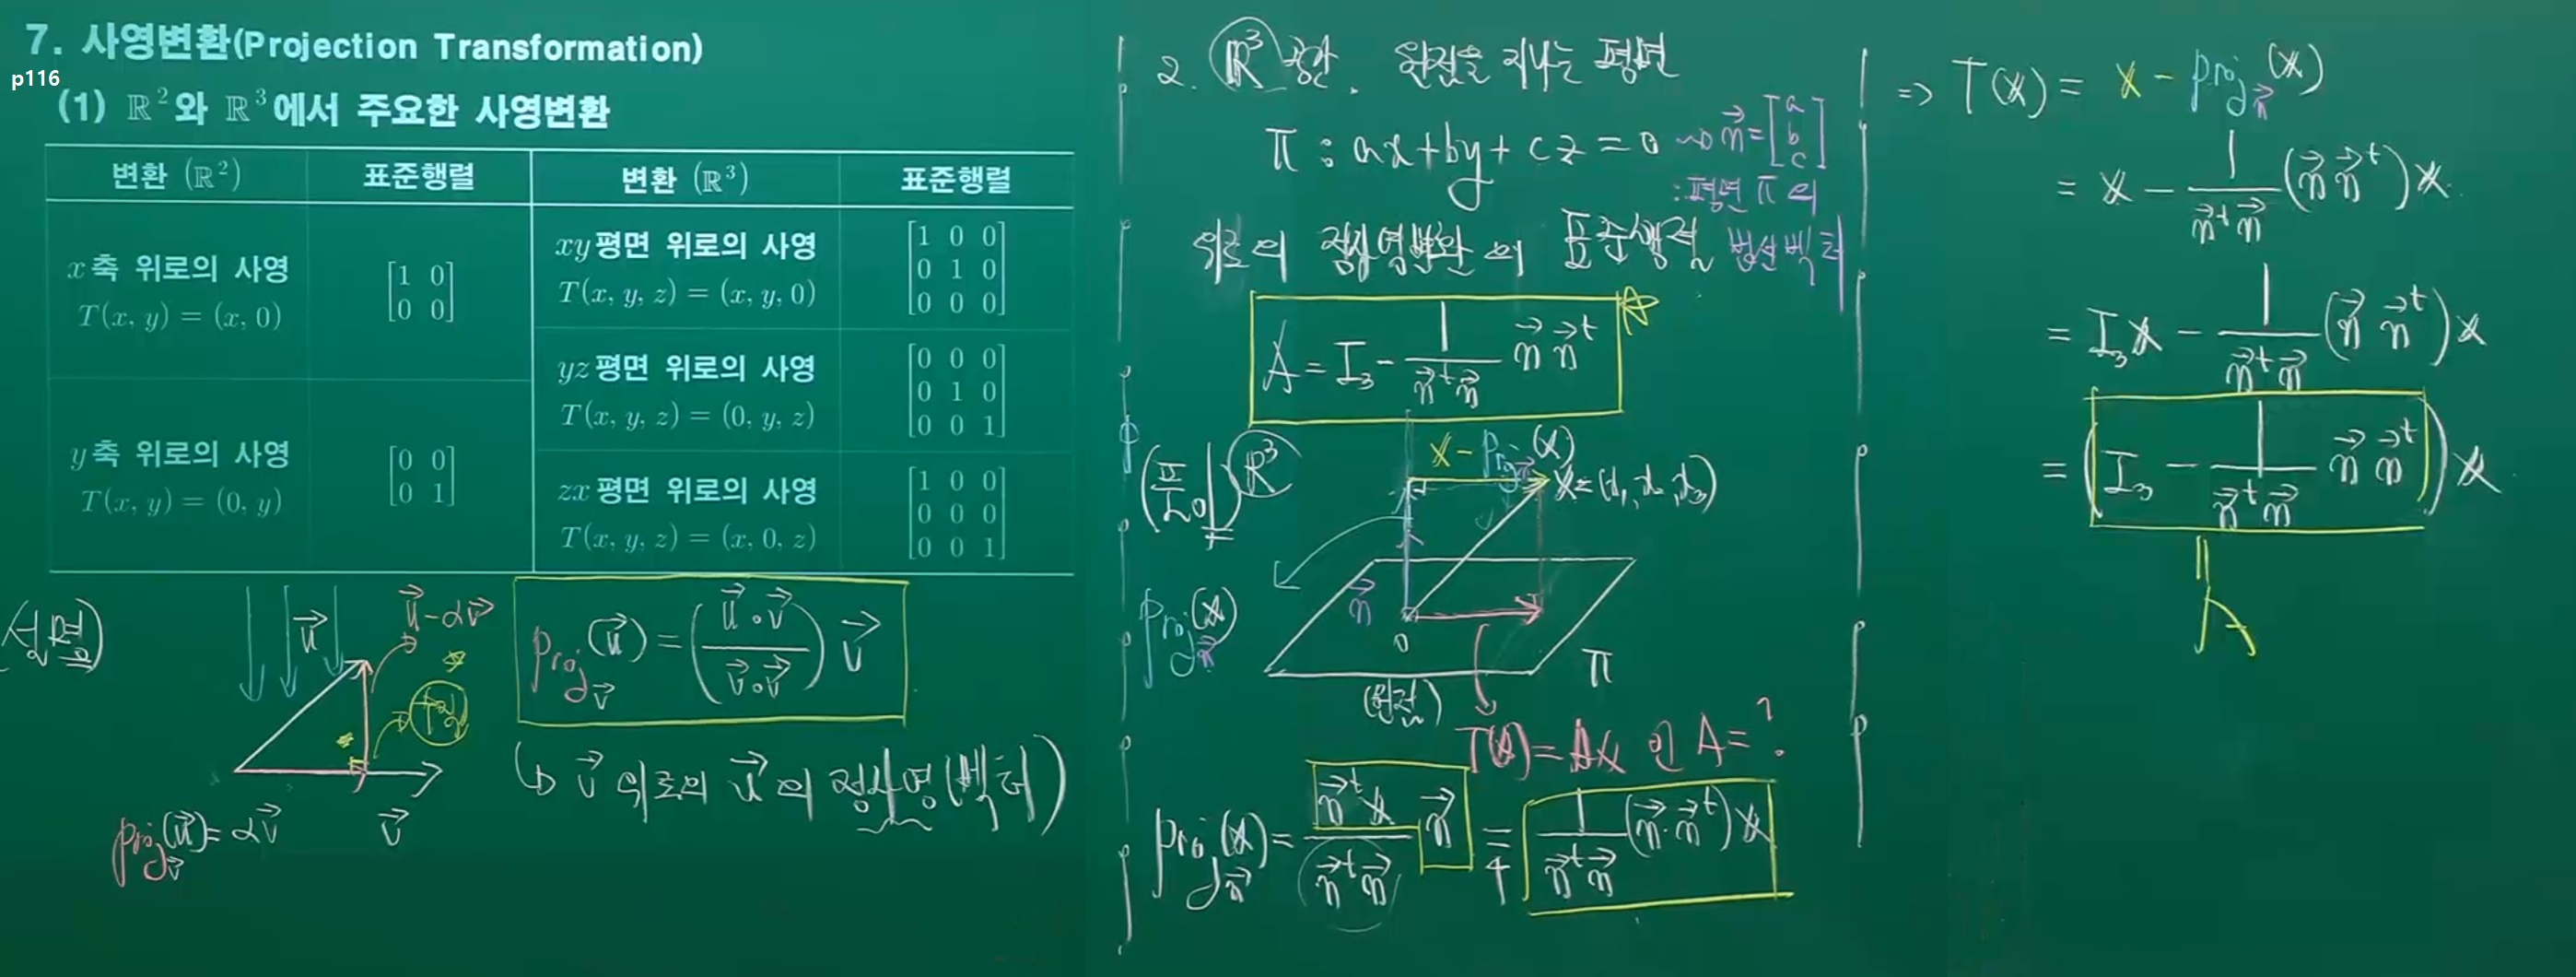 7. 사영변환(Projection Transformation)
p116
(1) ℝ²와 ℝ³에서 주요한 사영변환
변환 (ℝ²) 표준행렬 변환 (ℝ³) 표준행렬
x축 위로의 사영
T(x, y) = (x, 0)
[1 0]
[0 0]
y축 위로의 사영
T(x, y) = (0, y)
[0 0]
[0 1]
xy평면 위로의 사영
T(x, y, z) = (x, y, 0)
[1 0 0]
[0 1 0]
[0 0 0]
yz평면 위로의 사영
T(x, y, z) = (0, y, z)
[0 0 0]
[0 1 0]
[0 0 1]
zx평면 위로의 사영
T(x, y, z) = (x, 0, z)
[1 0 0]
[0 0 0]
[0 0 1]
(설명)
u⃗
u⃗-αv⃗
proj_v⃗(u⃗) = αv⃗
v⃗
proj_v⃗(u⃗) = (u⃗∘v⃗ / v⃗∘v⃗) v⃗
(↳ v⃗ 위로의 u⃗의 정사영(벡터)
2. ℝ³공간. 원점을 지나는 평면
π : ax+by+cz=0 ⇝ n⃗=[a b c]
:평면 π의
법선벡터
위로의 정사영변환의 표준행렬
A = I₃ - 1/(n⃗ᵗn⃗) n⃗ n⃗ᵗ
(풀이) ℝ³
x - proj_n⃗(x)
x=(x₁, x₂, x₃)
proj_n⃗(x)
n⃗
0
π
(원점)
T(x)=Ax 인 A=?
proj_n⃗(x) = (n⃗ᵗx / n⃗ᵗn⃗) n⃗ = 1/(n⃗ᵗn⃗) (n⃗·n⃗ᵗ)x
⇒ T(x) = x - proj_n⃗(x)
= x - 1/(n⃗ᵗn⃗) (n⃗ n⃗ᵗ)x
= I₃x - 1/(n⃗ᵗn⃗) (n⃗ n⃗ᵗ)x
= (I₃ - 1/(n⃗ᵗn⃗) n⃗ n⃗ᵗ)x
∥
A